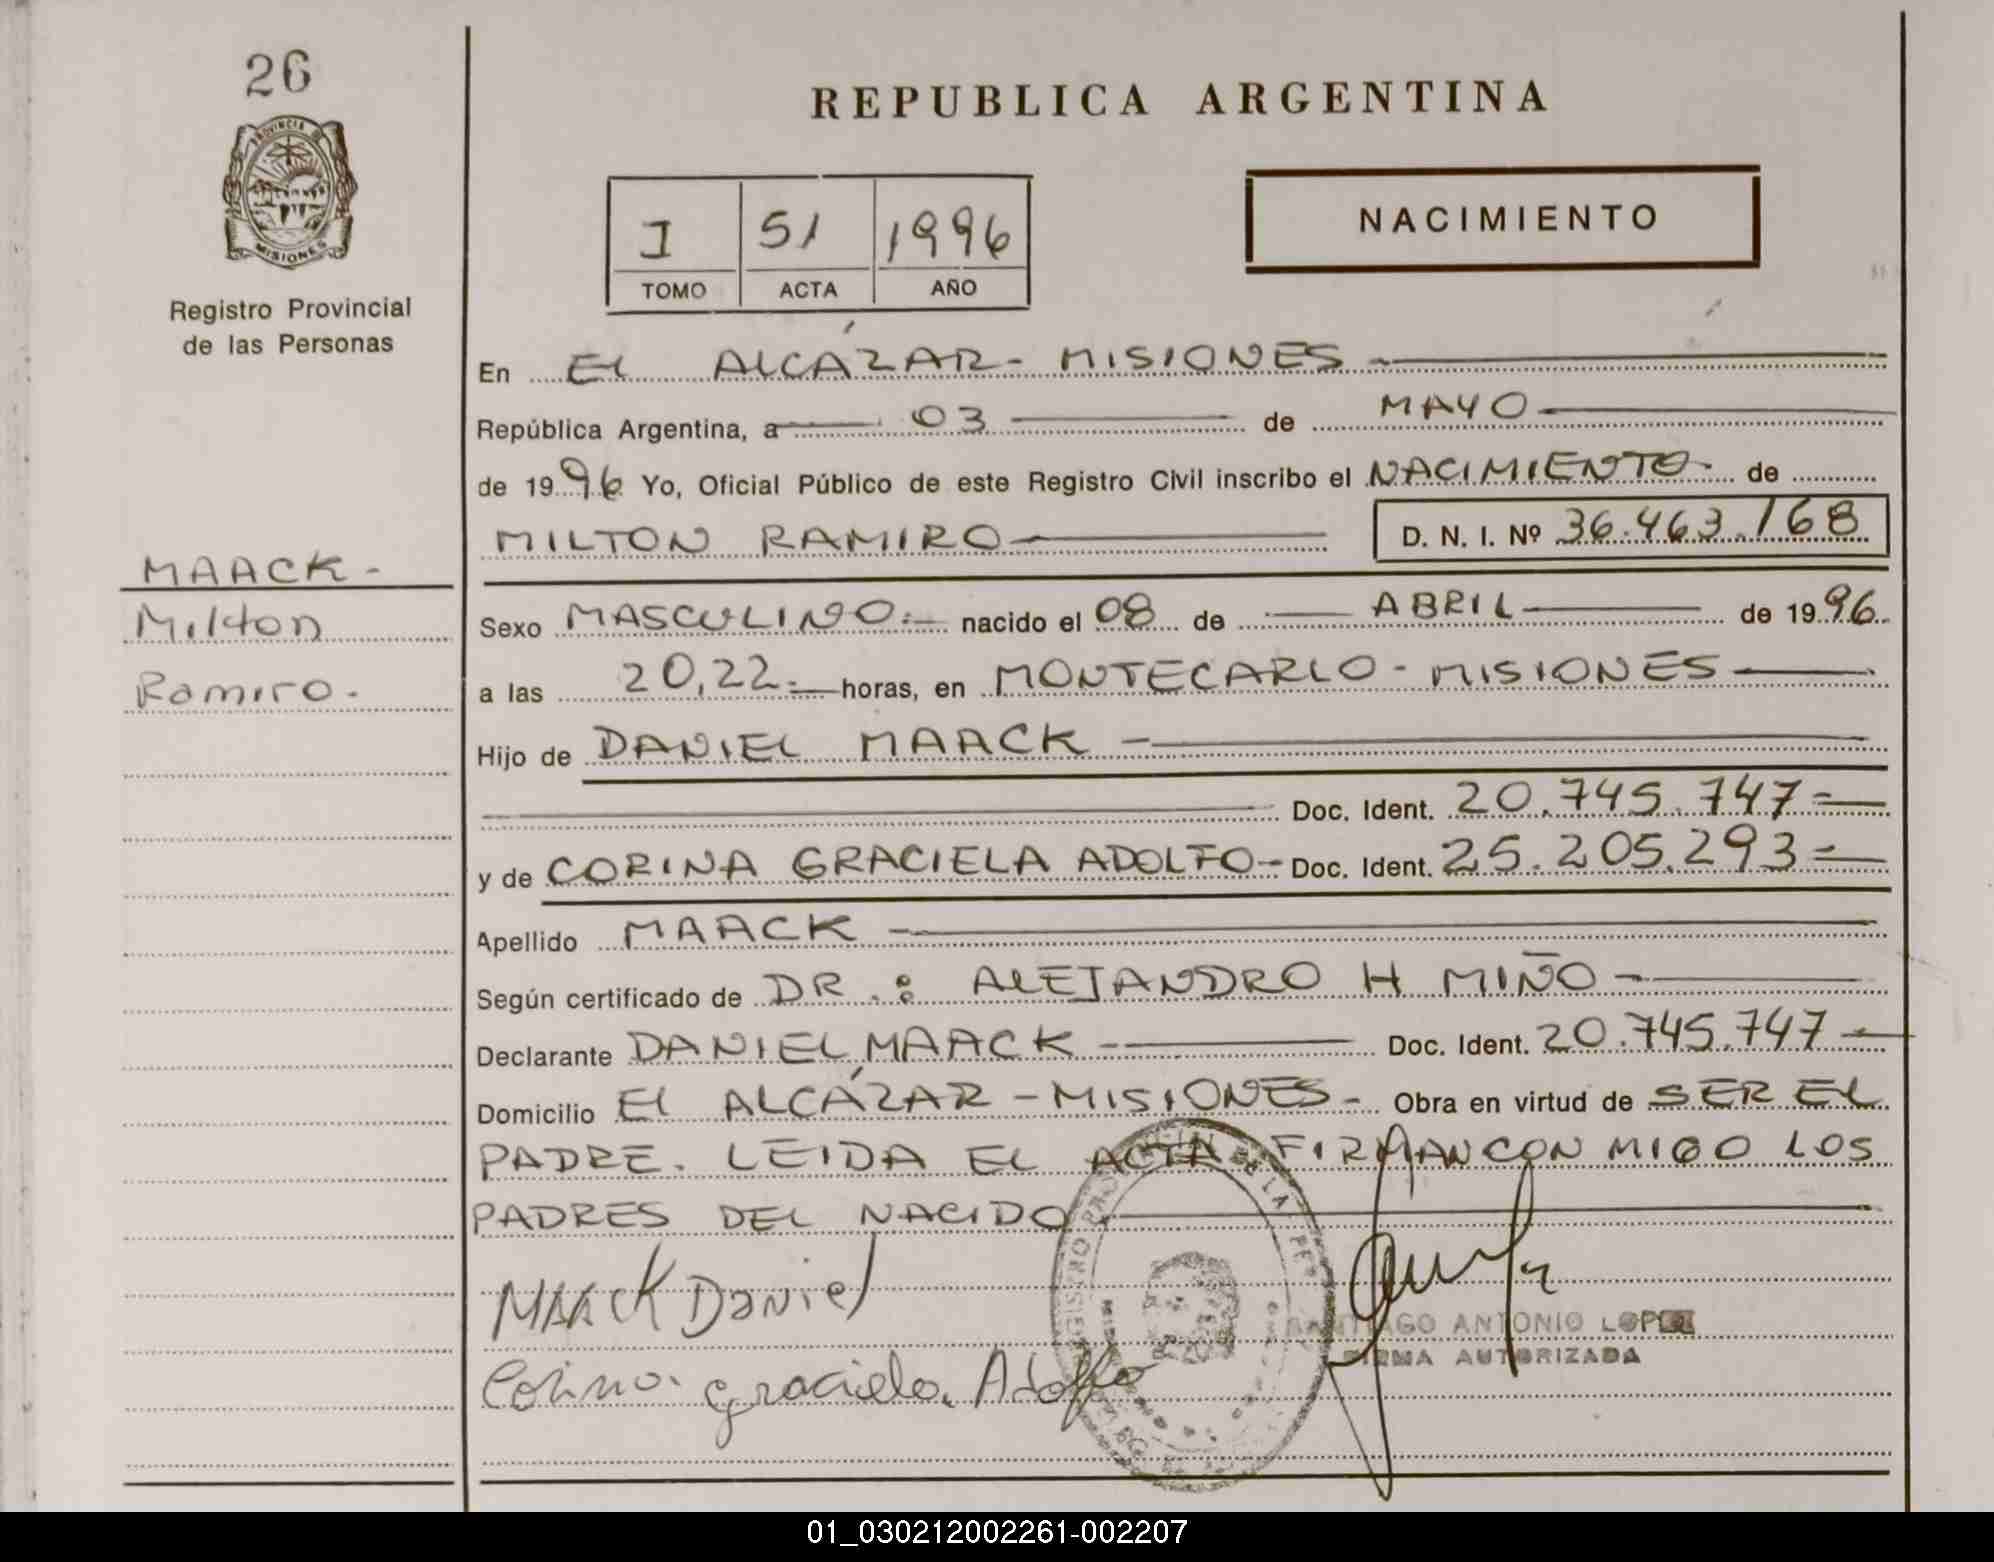 26
PROVINCIA DE
MISIONES
Registro Provincial
de las Personas
MAACK -
Milton
Ramiro.
REPUBLICA ARGENTINA
I 51 1996
TOMO ACTA AÑO
NACIMIENTO
En El ALCÁZAR - MISIONES -
República Argentina, a 03 de MAYO
de 1996 Yo, Oficial Público de este Registro Civil inscribo el NACIMIENTO - de
MILTON RAMIRO D. N. I. Nº 36.463.168
Sexo MASCULINO.- nacido el 08 de ABRIL de 1996.
a las 20,22.- horas, en MONTECARLO - MISIONES
Hijo de DANIEL MAACK -
Doc. Ident. 20.745.747 =
y de CORINA GRACIELA ADOLFO - Doc. Ident. 25.205.293 =
Apellido MAACK
Según certificado de DR.: ALEJANDRO H MIÑO -
Declarante DANIEL MAACK - Doc. Ident. 20.745.747 -
Domicilio El ALCÁZAR - MISIONES - Obra en virtud de SER EL
PADRE. LEIDA EL ACTA FIRMAN CON MIGO LOS
PADRES DEL NACIDO.
MAACK Daniel
SANTIAGO ANTONIO LOPEZ
FIRMA AUTORIZADA
Corina Graciela Adolfo
01_030212002261-002207